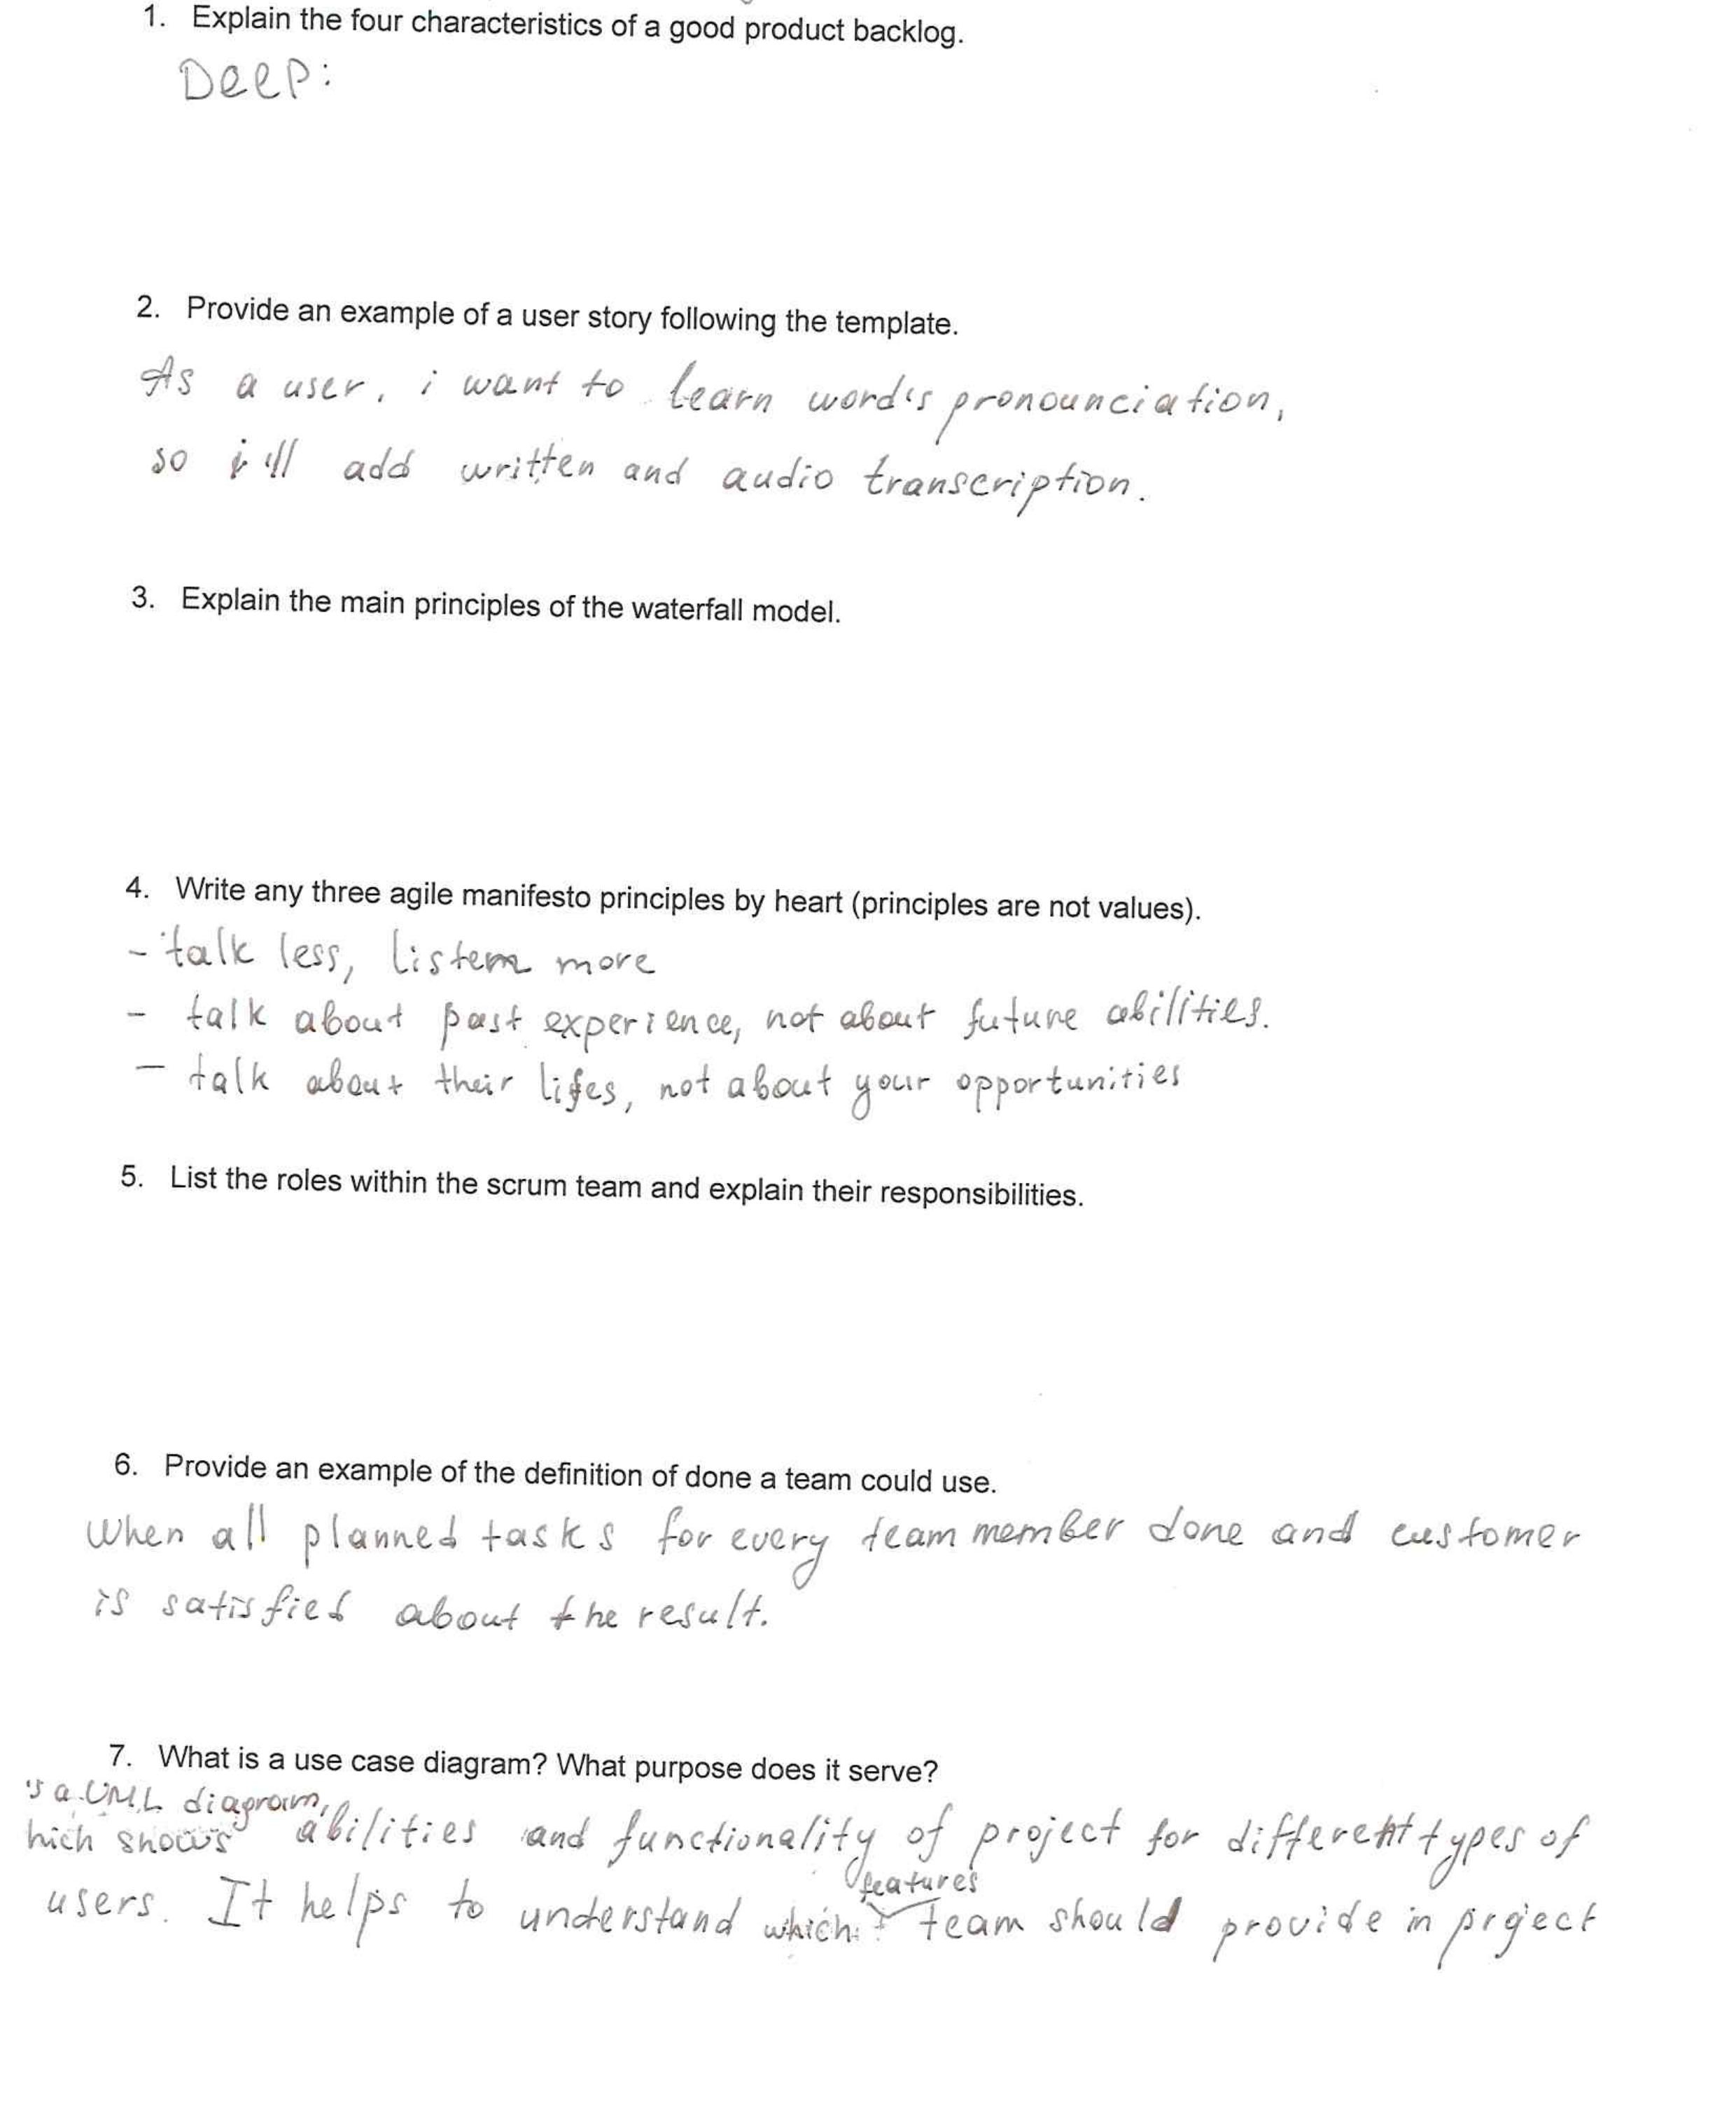 1. Explain the four characteristics of a good product backlog.
Deep:
2. Provide an example of a user story following the template.
As a user, i want to learn word's pronounciation,
so i'll add written and audio transcription.
3. Explain the main principles of the waterfall model.
4. Write any three agile manifesto principles by heart (principles are not values).
- talk less, listen more
- talk about past experience, not about future abilities.
- talk about their lifes, not about your opportunities
5. List the roles within the scrum team and explain their responsibilities.
6. Provide an example of the definition of done a team could use.
When all planned tasks for every team member done and customer
is satisfied about the result.
7. What is a use case diagram? What purpose does it serve?
's a UML diagram,
hich shows abilities and functionality of project for different types of
features
users. It helps to understand which team should provide in project